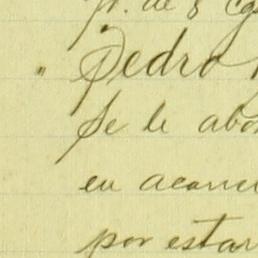 de 8
" Pedro
Se le abo
en acarre
por estar